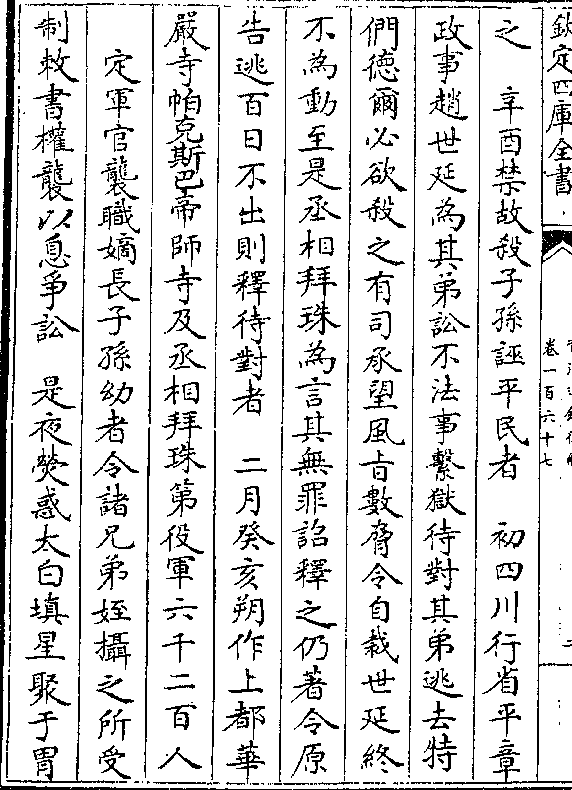 欽定四庫全書
卷一百六十七
之　辛酉禁故殺子孫誣平民者　初四川行省平章
政事趙世延為其弟訟不法事繫獄待對其弟逃去特
們德爾必欲殺之有司承望風旨數脅令自裁世延終
不為動至是丞相拜珠為言其無罪詔釋之仍著令原
告逃百日不出則釋待對者　二月癸亥朔作上都華
嚴寺帕克斯巴帝師寺及丞相拜珠第役軍六千二百人
定軍官襲職嫡長子孫幼者令諸兄弟姪攝之所受
制敕書權襲以息爭訟　是夜熒惑太白填星聚于胃